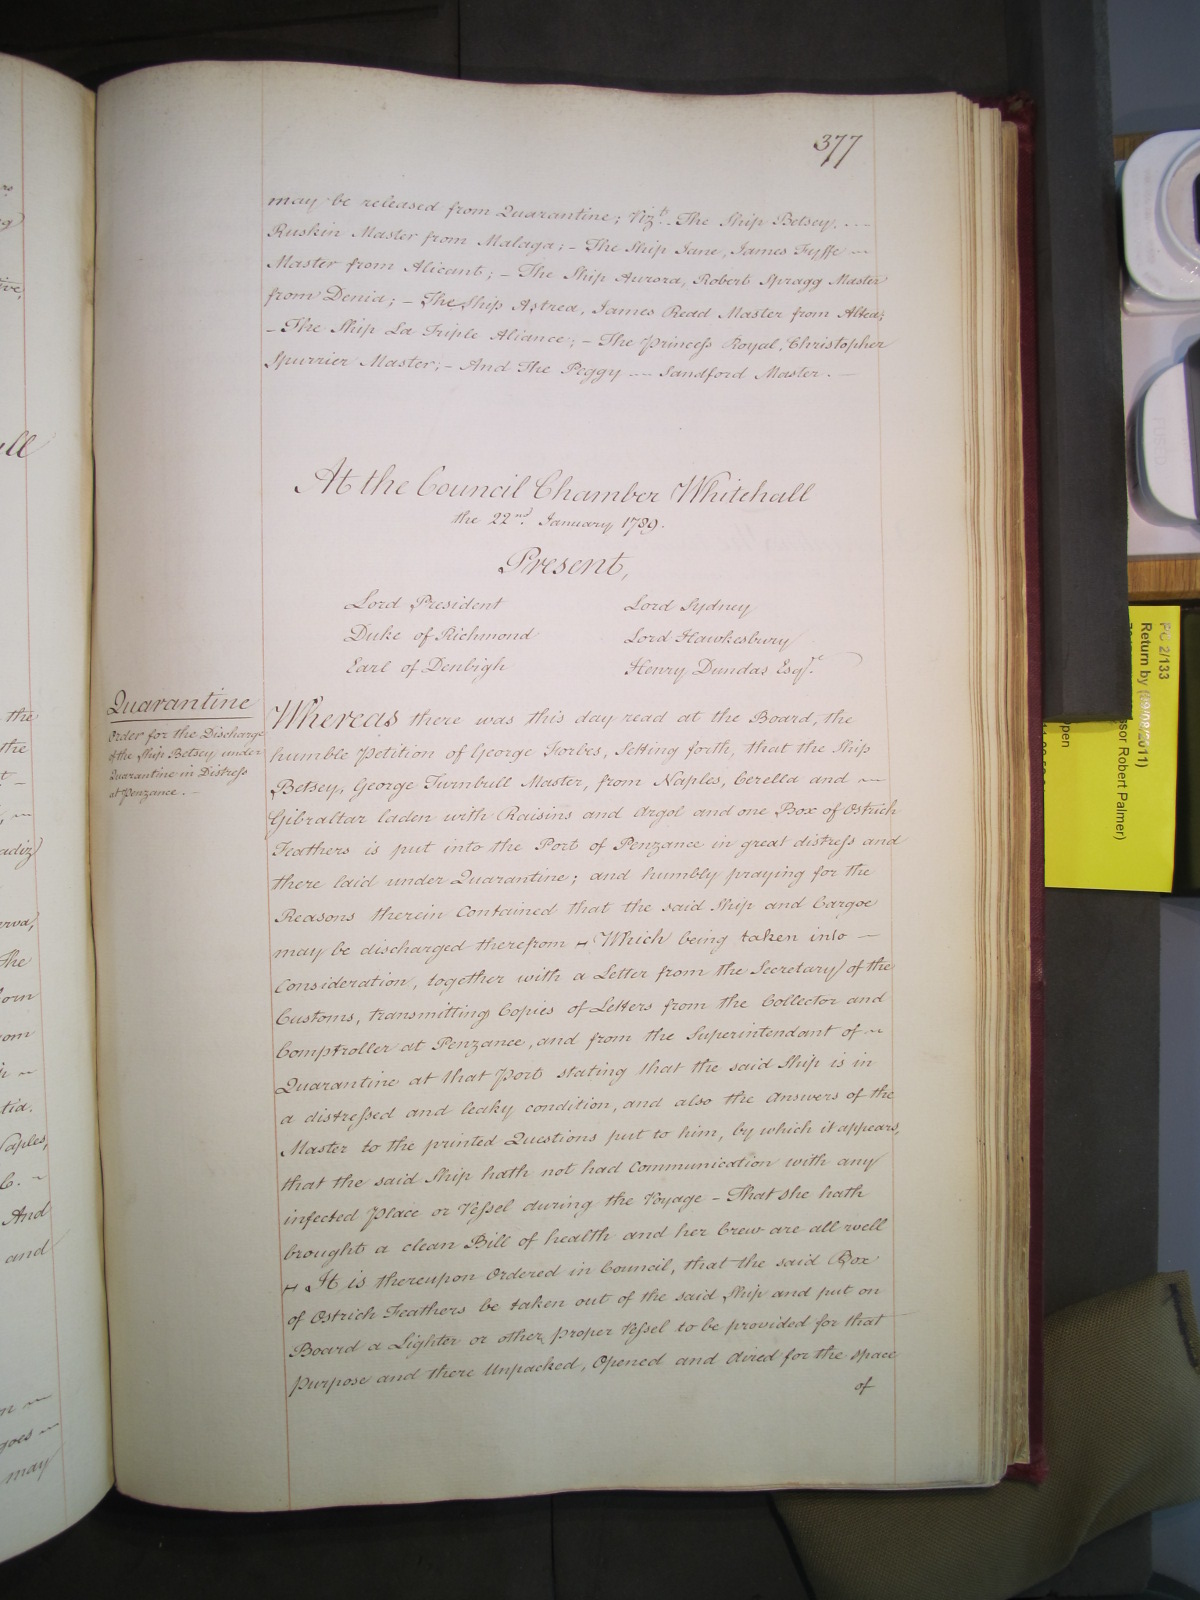 377
may be released from Quarantine; Vizt. - The Ship Betsey, ---
Ruskin Master from Malaga; - The Ship Jane, James Fyffe ~
Master from Alicant; - The Ship Aurora, Robert Spragg Master
from Denia; - The Ship Astrea, James Read Master from Altea;
- The Ship La Triple Aliance; - The Princess Royal, Christopher
Spurrier Master; - And The Peggy --- Sandford Master. -
At the Council Chamber Whitehall
the 22nd. January 1789.
Present,
Lord President
Duke of Richmond
Earl of Denbigh
Lord Sydney
Lord Hawkesbury
Henry Dundas Esqr.
Quarantine
Order for the Discharge
of the Ship Betsey under
Quarantine in Distress
at Penzance. -
Whereas there was this day read at the Board, the
humble Petition of George Forbes, Setting forth, that the Ship
Betsey, George Turnbull Master, from Naples, Cerella and ~
Gibraltar laden with Raisins and Argol and one Box of Ostrich
Feathers is put into the Port of Penzance in great distress and
there laid under Quarantine; and humbly praying for the
Reasons therein Contained that the said Ship and Cargoe
may be discharged therefrom - Which being taken into -
Consideration, together with a Letter from the Secretary of the
Customs, transmitting Copies of Letters from the Collector and
Comptroller at Penzance, and from the Superintendant of ~
Quarantine at that Port stating that the said Ship is in
a distressed and leaky condition, and also the Answers of the
Master to the printed Questions put to him, by which it appears,
that the said Ship hath not had Communication with any
infected Place or Vessel during the Voyage - That she hath
brought a clean Bill of health and her Crew are all well
- It is thereupon Ordered in Council, that the said Box
of Ostrich Feathers be taken out of the said Ship and put on
Board a Lighter or other proper Vessel to be provided for that
Purpose and there Unpacked, Opened and Aired for the space
of
PC 2/133
Return by (09/08/2011)
sor Robert Palmer)
pen
ll
ive,
the
the
adiz
erva,
The
orn
rom
tia.
Naples,
And
and
goes ~
may